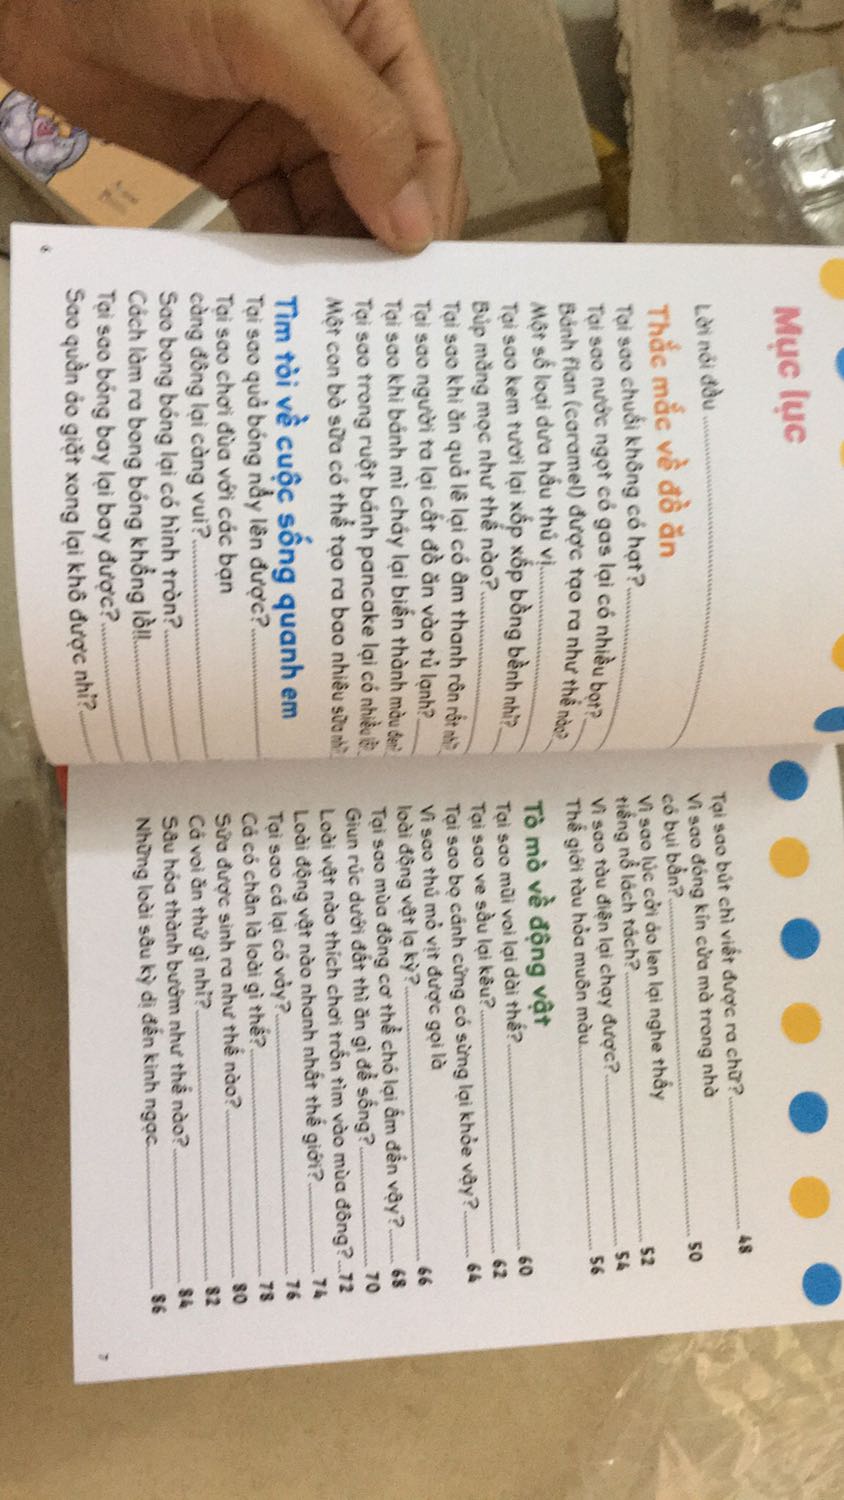 Mục lục
Lời nói đầu
Thắc mắc về đồ ăn
Tại sao chuối không có hạt?
Tại sao nước ngọt có gas lại có nhiều bọt?
Bánh flan (caramel) được tạo ra như thế nào?
Một số loại dưa hấu thú vị
Tại sao kem tươi lại xốp xốp bồng bềnh nhỉ?
Búp măng mọc như thế nào?
Tại sao khi ăn quả lê lại có âm thanh rôn rốt nhỉ?
Tại sao người ta lại cất đồ ăn vào tủ lạnh?
Tại sao khi bánh mì cháy lại biến thành màu đen?
Tại sao trong ruột bánh pancake lại có nhiều lỗ?
Một con bò sữa có thể tạo ra bao nhiêu sữa nhỉ?
Tìm tòi về cuộc sống quanh em
Tại sao quả bóng nảy lên được?
Tại sao chơi đùa với các bạn
càng đông lại càng vui?
Sao bong bóng lại có hình tròn?
Cách làm ra bong bóng khổng lồ!!
Tại sao bóng bay lại bay được?
Sao quần áo giặt xong lại khô được nhỉ?
6
Tại sao bút chì viết được ra chữ? 48
Vì sao đóng kín cửa mà trong nhà
có bụi bẩn? 50
Vì sao lúc cởi áo len lại nghe thấy
tiếng nổ lách tách? 52
Vì sao tàu điện lại chạy được? 54
Thế giới tàu hỏa muôn màu 56
Tò mò về động vật
Tại sao mũi voi lại dài thế? 60
Tại sao ve sầu lại kêu? 62
Tại sao bọ cánh cứng có sừng lại khỏe vậy? 64
Vì sao thú mỏ vịt được gọi là
loài động vật lạ kỳ? 66
Tại sao mùa đông cơ thể chó lại ấm đến vậy? 68
Giun rúc dưới đất thì ăn gì để sống? 70
Loài vật nào thích chơi trốn tìm vào mùa đông? 72
Loài động vật nào nhanh nhất thế giới? 74
Tại sao cá lại có vảy? 76
Cá có chân là loài gì thế? 78
Sứa được sinh ra như thế nào? 80
Cá voi ăn thứ gì nhỉ? 82
Sâu hóa thành bướm như thế nào? 84
Những loài sâu kỳ dị đến kinh ngạc 86
7